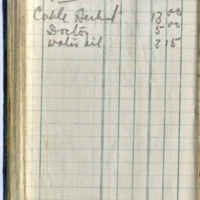 Cable 13 00
Doctor 5 00
water bill 3 15